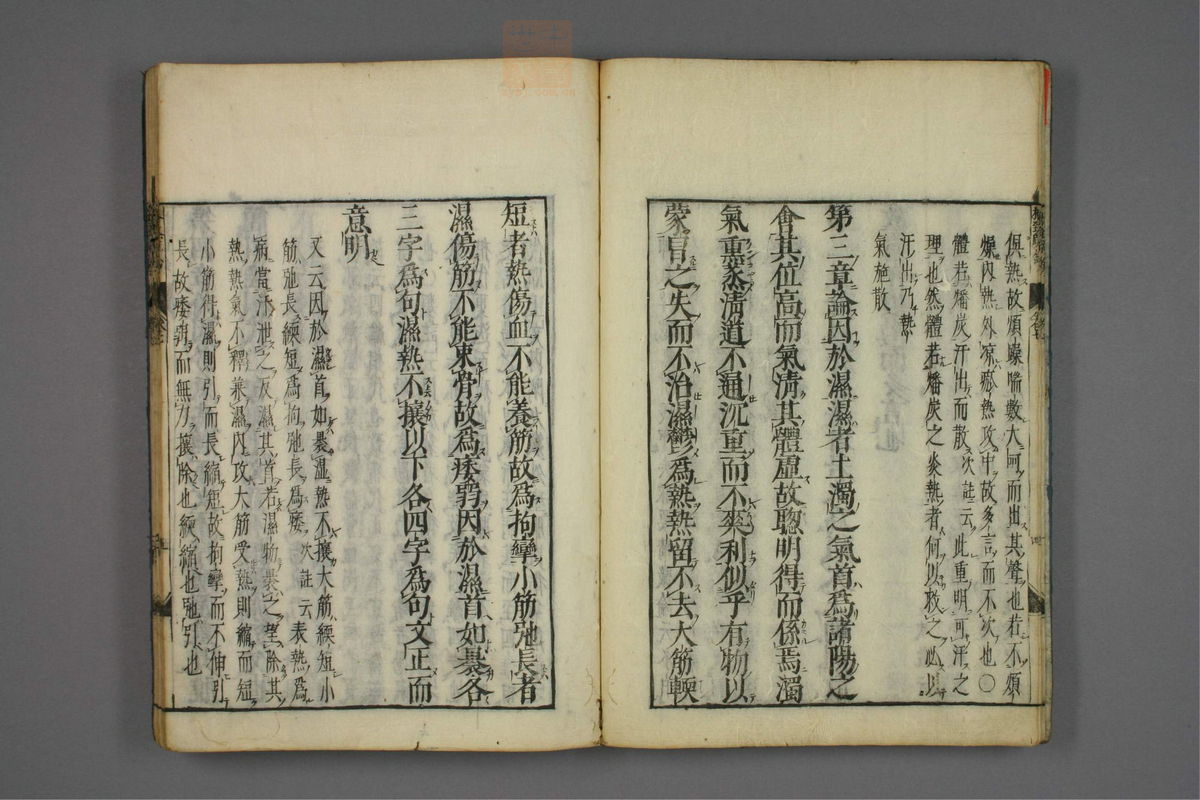 俱熱故煩躁喘數大呵而出其聲也若不煩
燥內熱外凉瘀熱攻中故多言而不次也〇
體若燔炭汗出而散次註云此重明可汗之
理也然體若燔炭之炎熱者何以救之必以
汗出乃熱
氣施散
第三章論因於濕濕者土濁之氣首爲諸陽之
會其位高而氣清其體虛故聰明得而係焉濁
氣熏蒸清道不通沉重而不爽利似乎有物以
蒙冒之失而不治濕鬱爲熱熱留不去大筋緛
短者熱傷血不能養筋故爲拘攣小筋弛長者
濕傷筋不能束骨故爲痿弱因於濕首如褁各
三字爲句濕熱不攘以下各四字爲句文正而
意明
又云因於濕首如褁濕熱不攘大筋緛短小
筋弛長緛短爲拘弛長爲痿次註云表熱爲
病當汗泄之反濕其首若濕物褁之望除其
熱熱氣不釋兼濕內攻大筋受熱則縮而短
小筋得濕則引而長縮短故拘攣而不伸引
長故痿弱而無力攘除也緛縮也弛引也